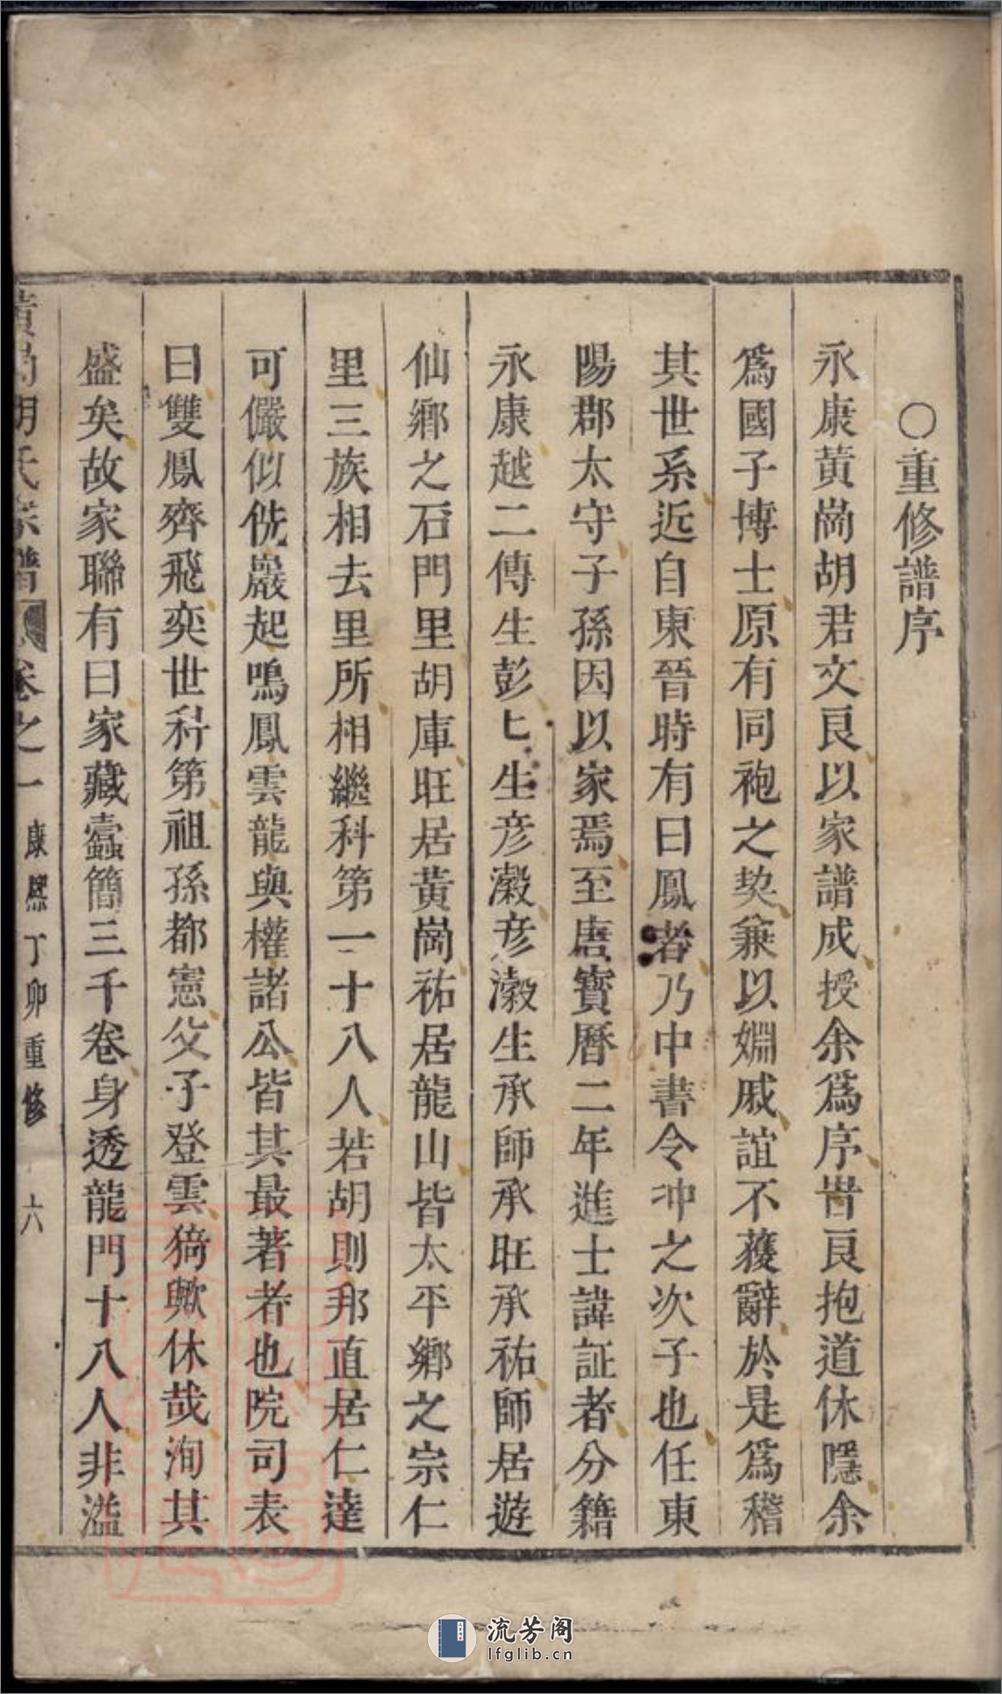 ○重修譜序
永康黃崗胡君文良以家譜成授余爲序昔良抱道休隱余
爲國子博士原有同袍之契兼以婣戚誼不獲辭於是爲稽
其世系近自東晉時有曰鳳者乃中書令冲之次子也任東
陽郡太守子孫因以家焉至唐寶曆二年進士諱証者分籍
永康越二傳生彭七生彦澱彦瀔生承師承旺承祐師居遊
仙鄉之石門里胡庫旺居黃崗祐居龍山皆太平鄉之宗仁
里三族相去里所相繼科第一十八人若胡則邦直居仁達
可儼似侁巖起鳴鳳雲龍與權諸公皆其最著者也院司表
曰雙鳳齊飛奕世科第祖孫都憲父子登雲猗歟休哉洵其
盛矣故家聯有曰家藏蠹簡三千卷身透龍門十八人非溢
黃崗胡氏宗譜 卷之一 康熙丁卯重修 六
流芳阁
lfglib.cn